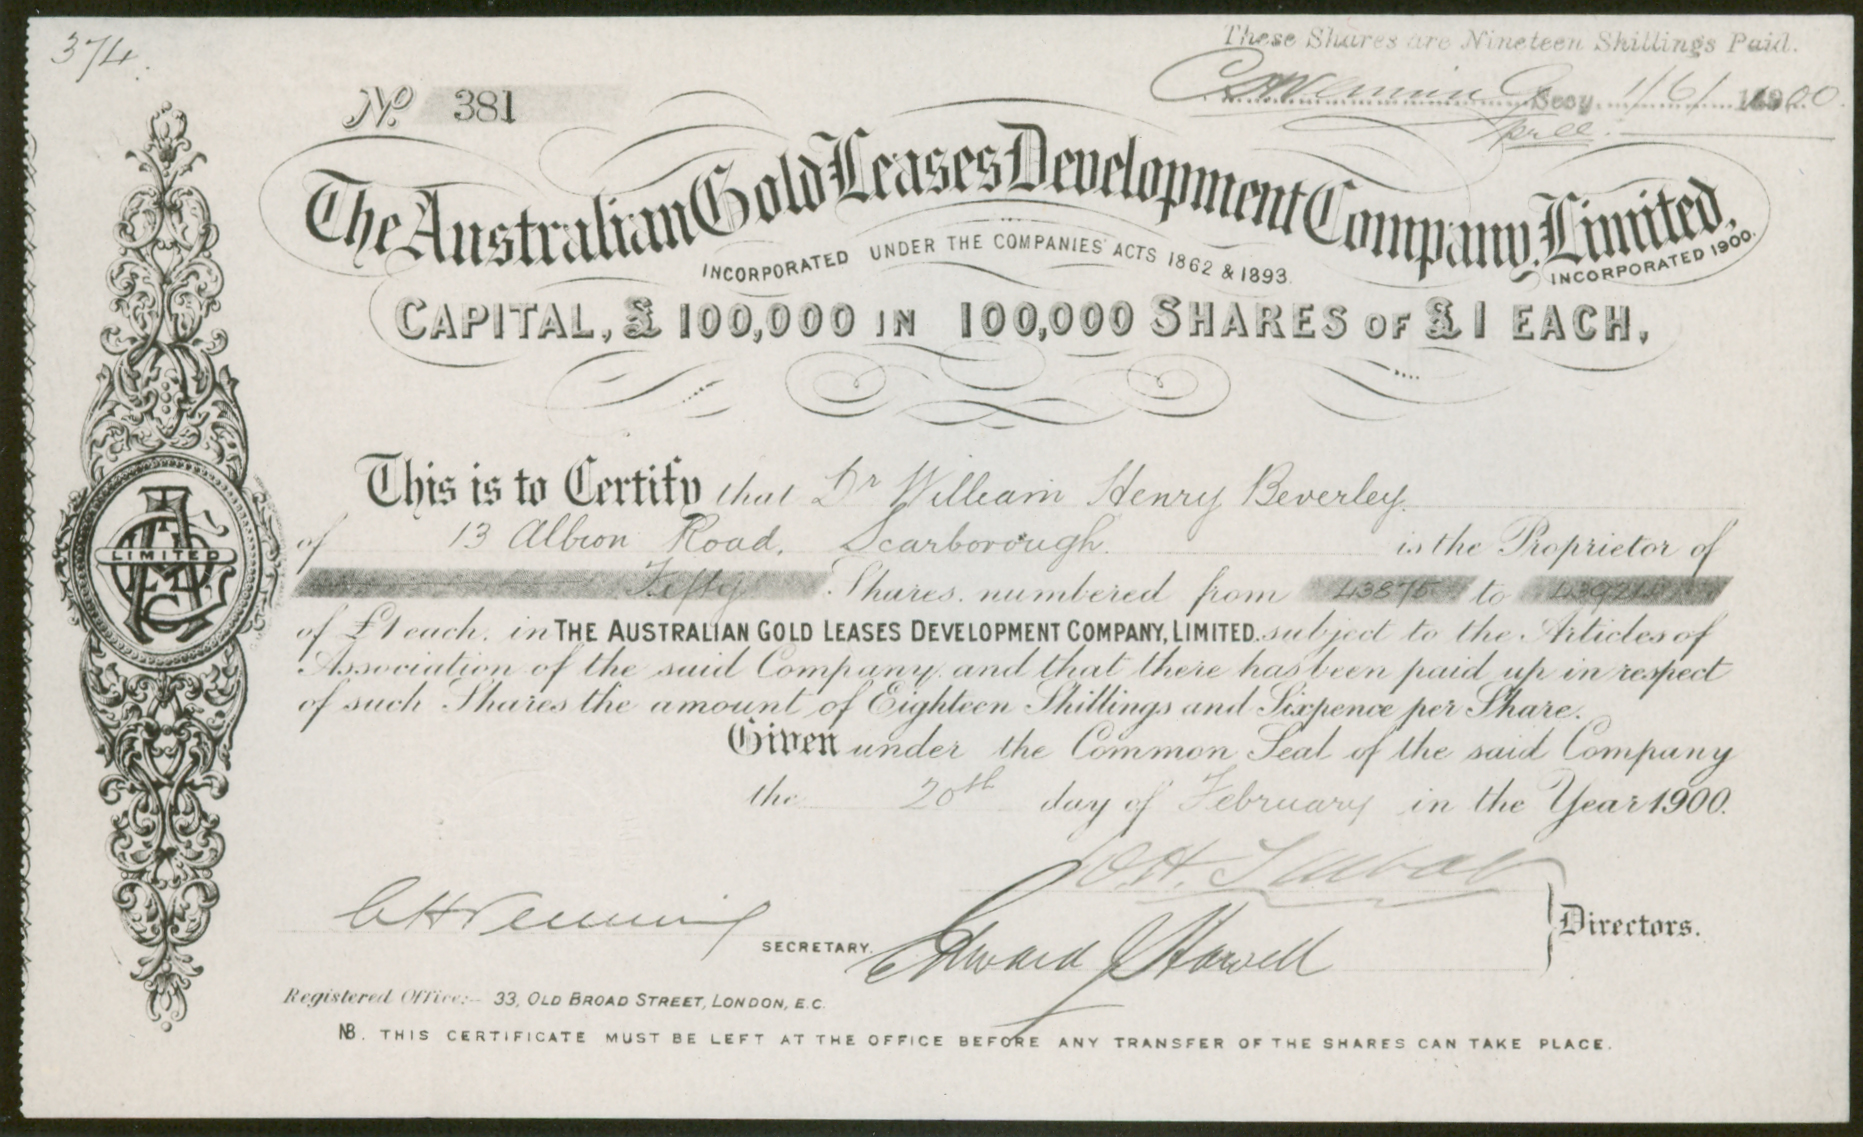 374.
These Shares are Nineteen Shillings Paid.
Secy. 1/6/1900
No. 381
The Australian Gold Leases Development Company, Limited,
INCORPORATED UNDER THE COMPANIES ACTS 1862 & 1893.
INCORPORATED 1900.
CAPITAL, £100,000 IN 100,000 SHARES OF £1 EACH,
This is to Certify that Dr William Henry Beverley
of 13 Albion Road, Scarborough. is the Proprietor of
Fifty Shares numbered from 43875 to 43924
of £1 each, in THE AUSTRALIAN GOLD LEASES DEVELOPMENT COMPANY, LIMITED. subject to the Articles of
Association of the said Company, and that there has been paid up in respect
of such Shares the amount of Eighteen Shillings and Sixpence per Share.
Given under the Common Seal of the said Company
the 20th day of February in the Year 1900.
LIMITED
SECRETARY.
Directors.
Registered Office:- 33, OLD BROAD STREET, LONDON, E.C.
NB. THIS CERTIFICATE MUST BE LEFT AT THE OFFICE BEFORE ANY TRANSFER OF THE SHARES CAN TAKE PLACE.